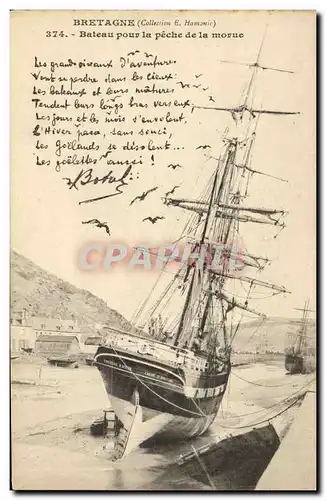 BRETAGNE (Collection E. Hamonic)
374. - Bateau pour la pêche de la morue
Les grands oiseaux d'aventure
Vont se perdre dans les cieux.
Les bateaux et leurs mâtures
Tendent leurs longs bras vers eux,
Les jours et les mois s'envolent,
L'Hiver passa, sans souci,
Les Goëlands se désolent...
Les goëlettes aussi !
Botrel
CPARAMA